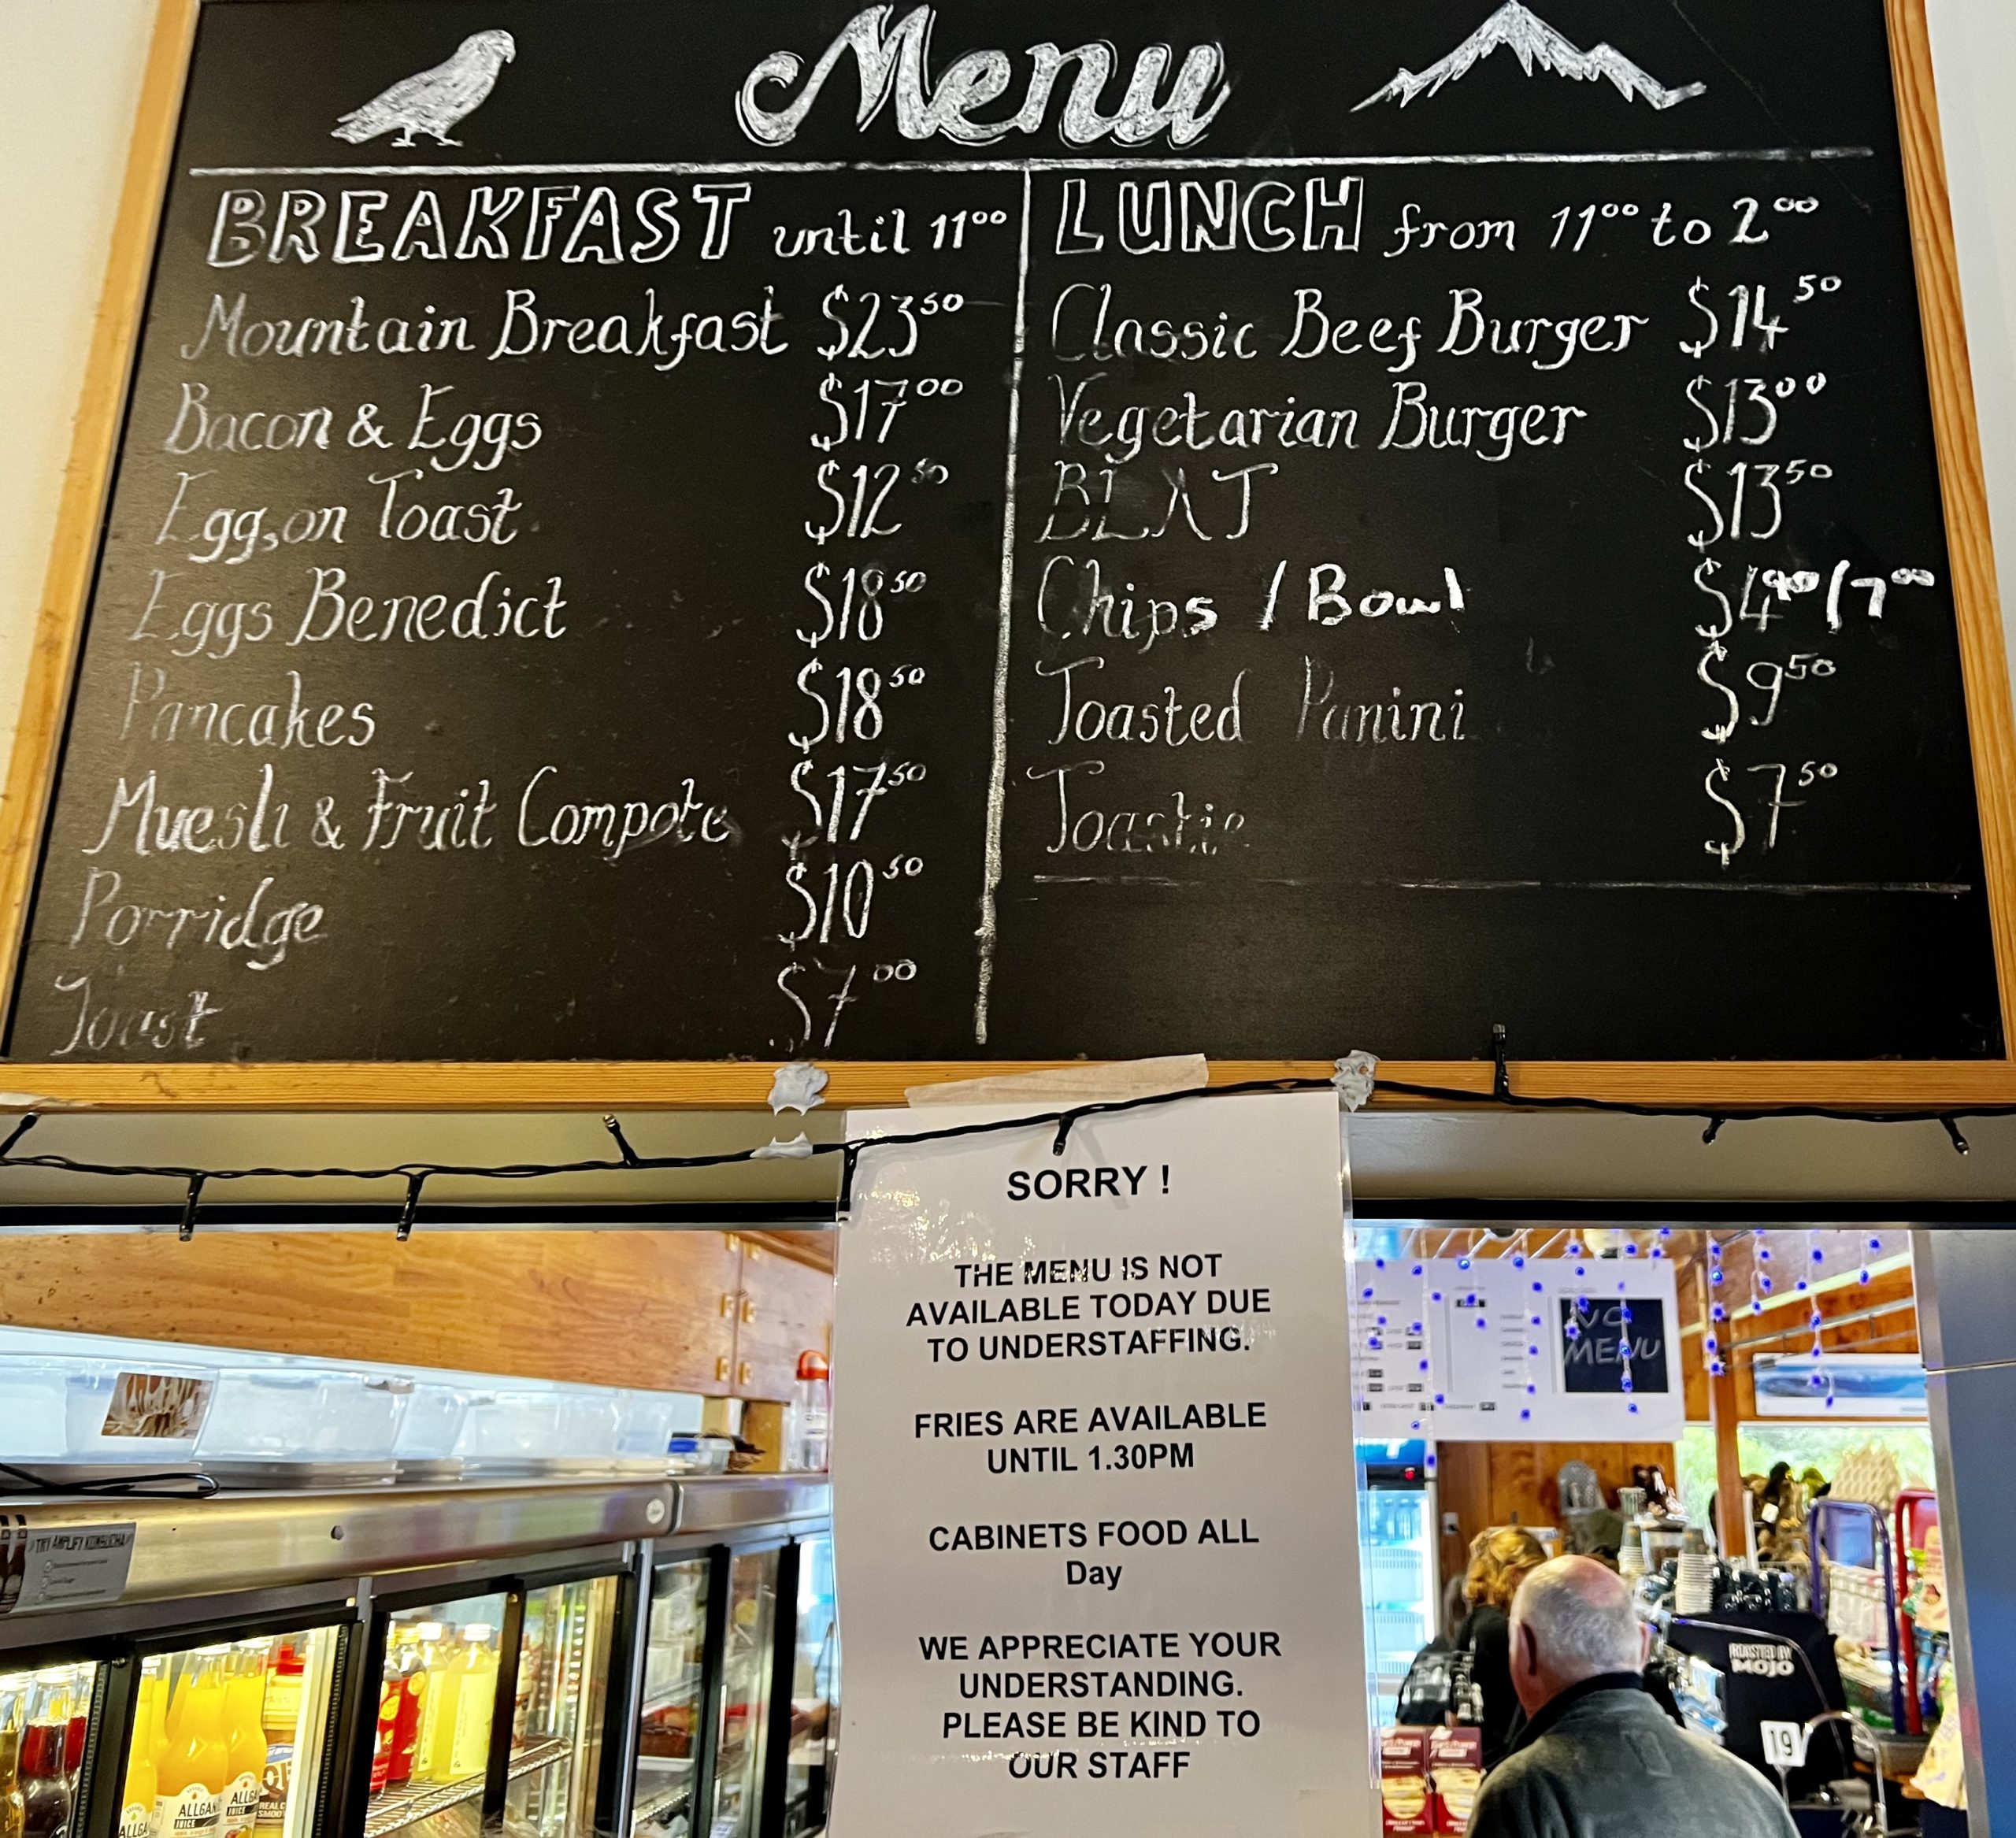 Menu
BREAKFAST until 11⁰⁰
Mountain Breakfast $23⁵⁰
Bacon & Eggs $17⁰⁰
Eggs on Toast $12⁵⁰
Eggs Benedict $18⁵⁰
Pancakes $18⁵⁰
Muesli & Fruit Compote $17⁵⁰
Porridge $10⁵⁰
Toast $7⁰⁰
LUNCH from 11⁰⁰ to 2⁰⁰
Classic Beef Burger $14⁵⁰
Vegetarian Burger $13⁰⁰
BLAT $13⁵⁰
Chips / Bowl $4⁹⁰/7⁰⁰
Toasted Panini $9⁵⁰
Toastie $7⁵⁰
SORRY !
THE MENU IS NOT
AVAILABLE TODAY DUE
TO UNDERSTAFFING.
FRIES ARE AVAILABLE
UNTIL 1.30PM
CABINETS FOOD ALL
Day
WE APPRECIATE YOUR
UNDERSTANDING.
PLEASE BE KIND TO
OUR STAFF
NO
MENU
TRY AMPLIFY KOMBUCHA
ROASTED BY
MOJO
19
JUICE
JUICE